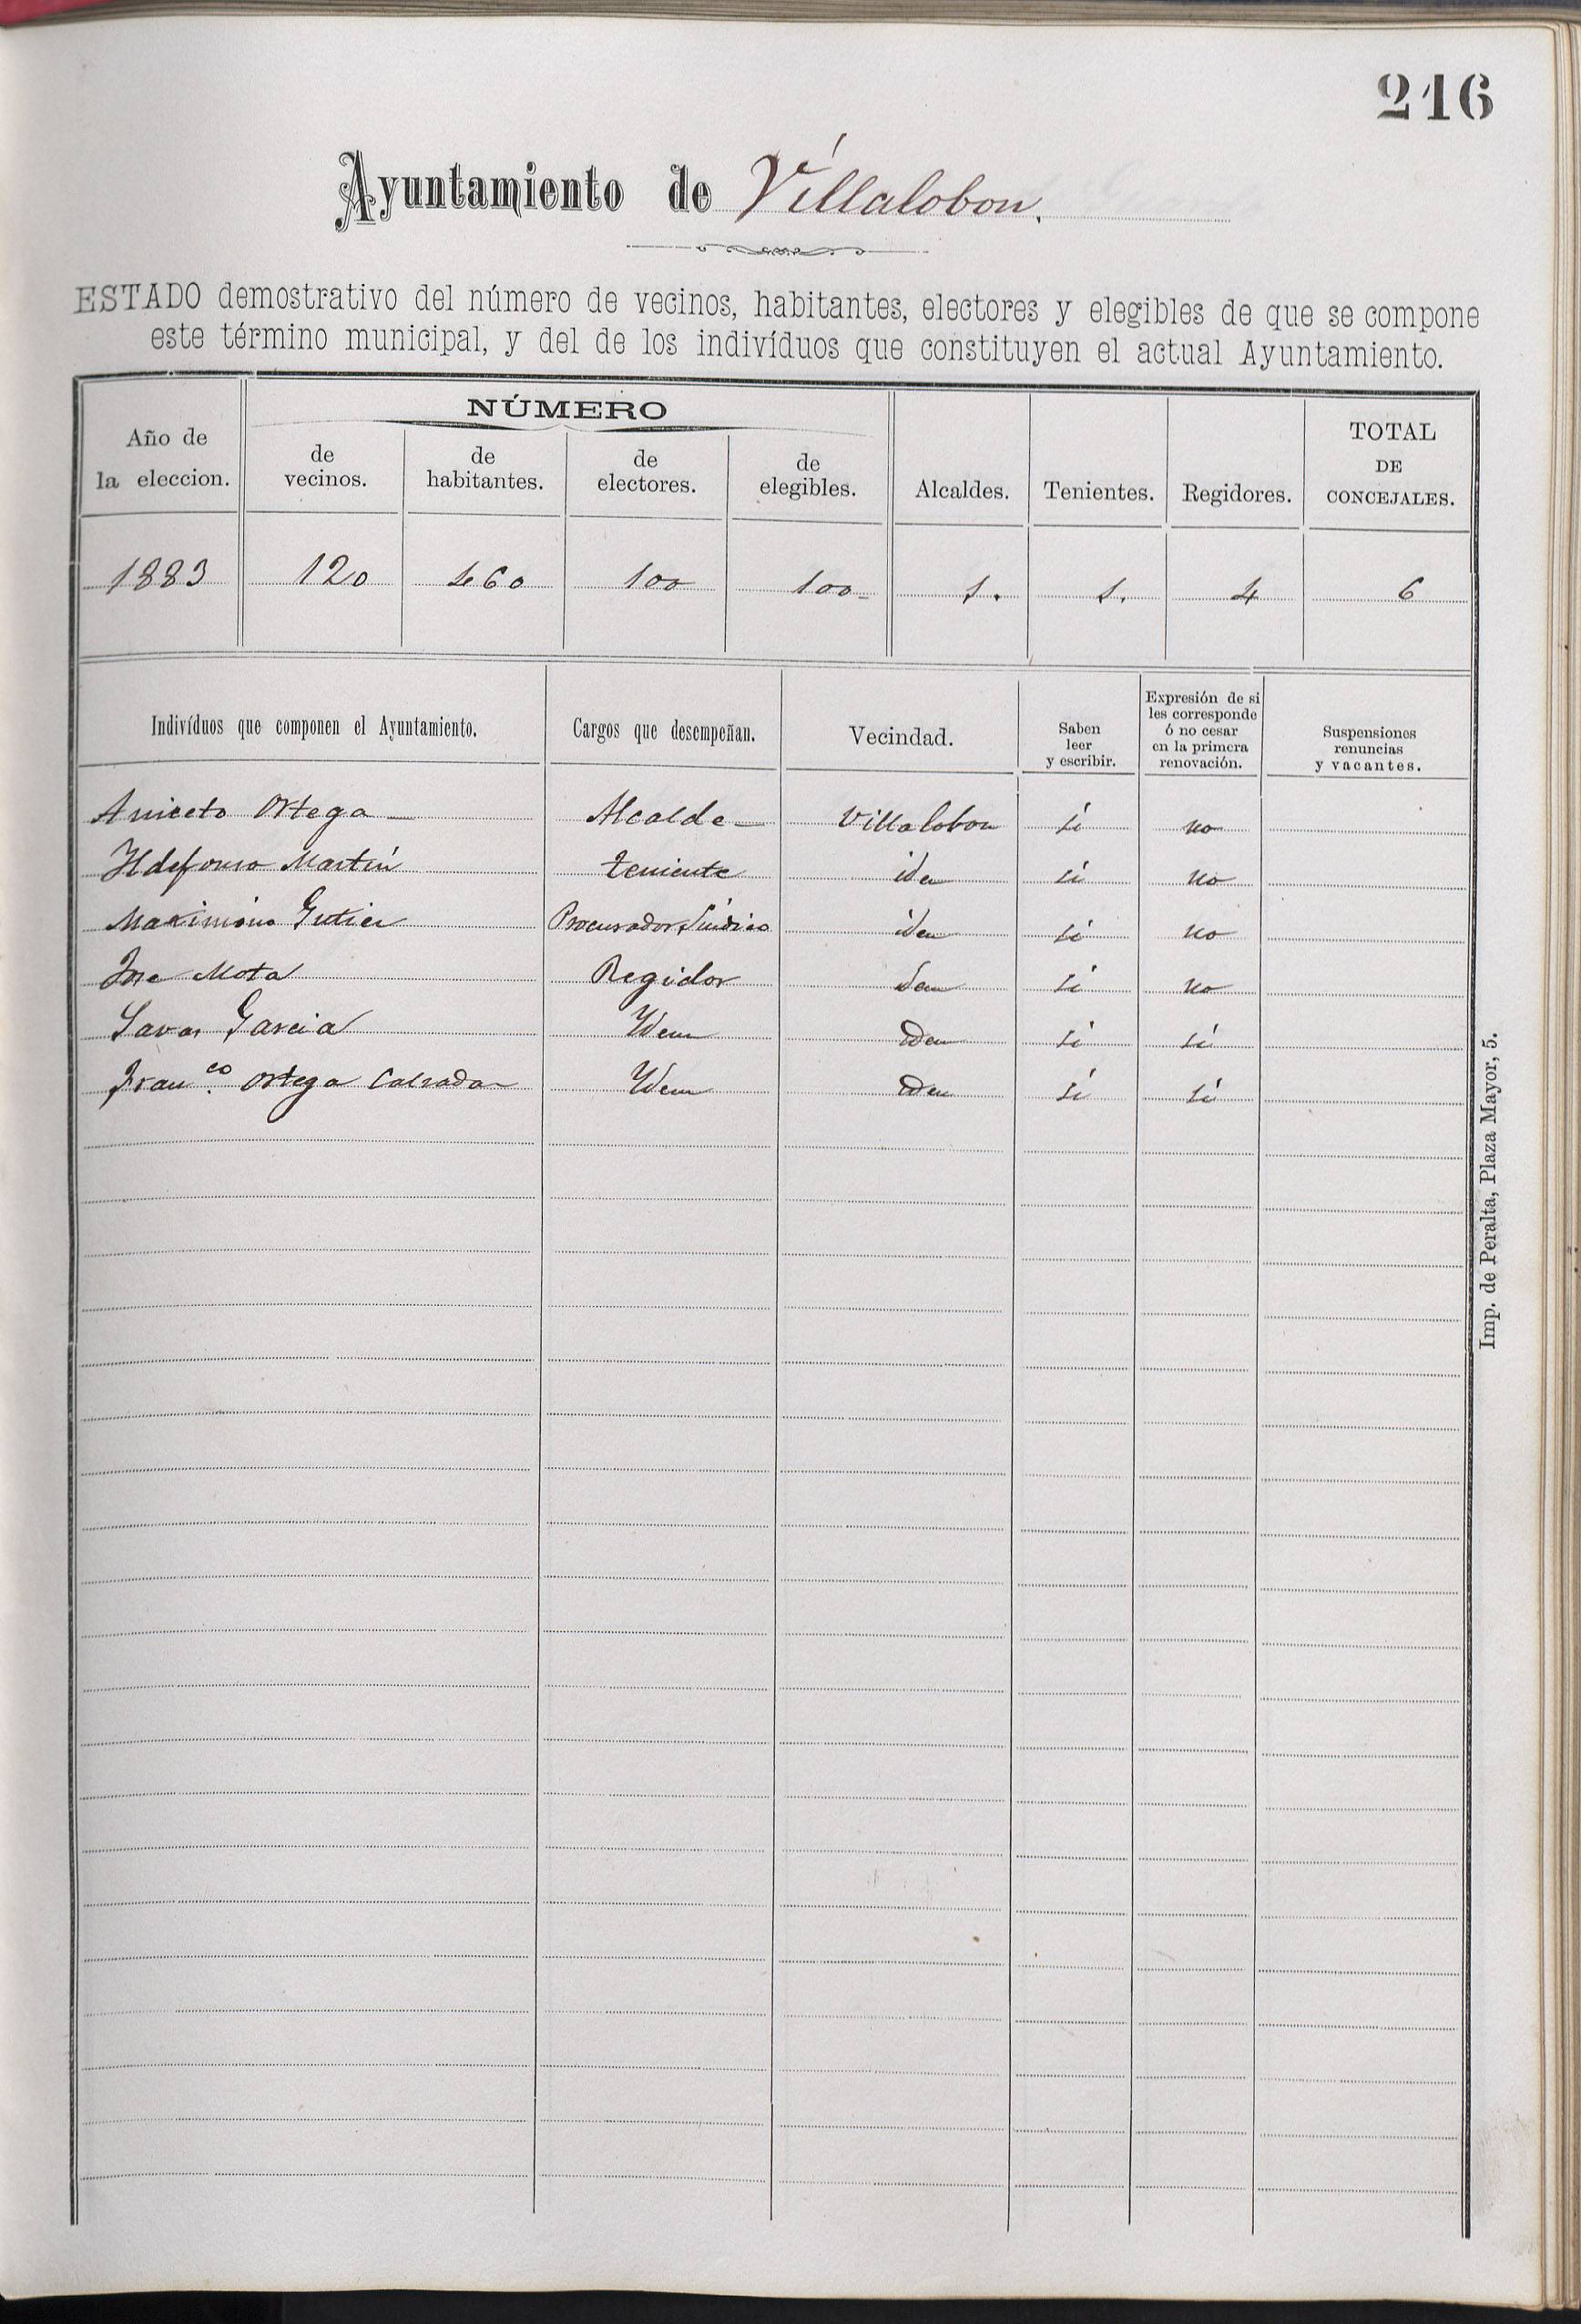 216
Ayuntamiento de Villalobon.
ESTADO demostrativo del número de vecinos, habitantes, electores y elegibles de que se compone
este término municipal, y del de los indivíduos que constituyen el actual Ayuntamiento.
NÚMERO
Año de la eleccion. de vecinos. de habitantes. de electores. de elegibles. Alcaldes. Tenientes. Regidores. TOTAL DE CONCEJALES.
1883 120 460 100 100 1. 1. 4 6
Indivíduos que componen el Ayuntamiento. Cargos que desempeñan. Vecindad. Saben leer y escribir. Expresión de si les corresponde ó no cesar en la primera renovación. Suspensiones renuncias y vacantes.
Aniceto Ortega Alcalde Villalobon sí no
Ildefonso Martín teniente iden sí no
Maximino Gutier Procurador Síndico iden sí no
Jose Mota Regidor Iden sí no
Savas Garcia Idem Iden sí sí
Franco. Ortega Calzada Idem Iden sí sí
Imp. de Peralta, Plaza Mayor, 5.